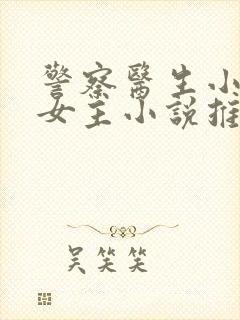 警察醫生小
女主小說推
吴笑笑